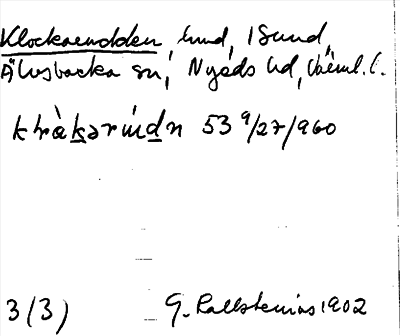 Klockarudden, hmd, i Sund,
Älvsbacka sn, Nyeds hd, Värml. l.
53 9/27/960
3 (3) G. Kallstenius 1902